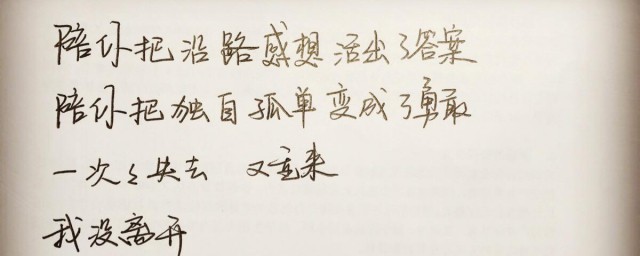 陪你把沿路感想活出了答案
陪你把独自孤单变成了勇敢
一次々失去 又重来
我没离开